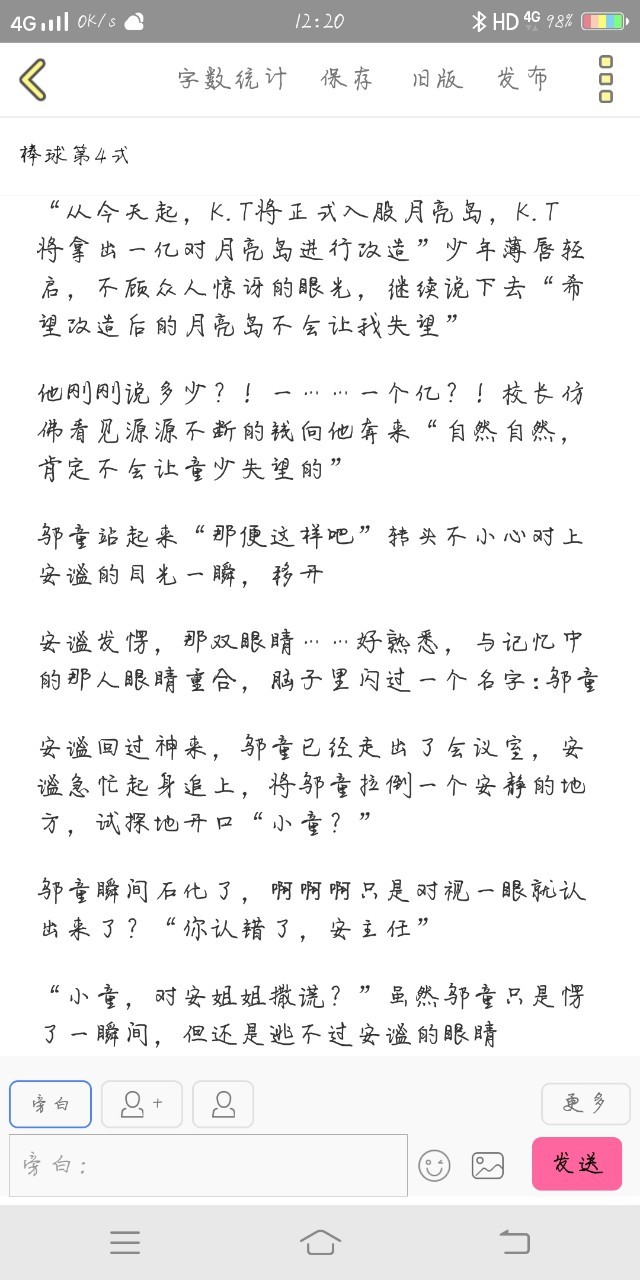 4G 0K/s 12:20 HD 4G 98%
字数统计 保存 旧版 发布
棒球第4式
“从今天起，K.T将正式入股月亮岛，K.T
将拿出一亿对月亮岛进行改造”少年薄唇轻
启，不顾众人惊讶的眼光，继续说下去“希
望改造后的月亮岛不会让我失望”
他刚刚说多少？！一……一个亿？！校长仿
佛看见源源不断的钱向他奔来“自然自然，
肯定不会让童少失望的”
邬童站起来“那便这样吧”转头不小心对上
安谧的目光一瞬，移开
安谧发愣，那双眼睛……好熟悉，与记忆中
的那人眼睛重合，脑子里闪过一个名字:邬童
安谧回过神来，邬童已经走出了会议室，安
谧急忙起身追上，将邬童拉倒一个安静的地
方，试探地开口“小童？”
邬童瞬间石化了，啊啊啊只是对视一眼就认
出来了？“你认错了，安主任”
“小童，对安姐姐撒谎？”虽然邬童只是愣
了一瞬间，但还是逃不过安谧的眼睛
旁白 + 更多
旁白： 发送